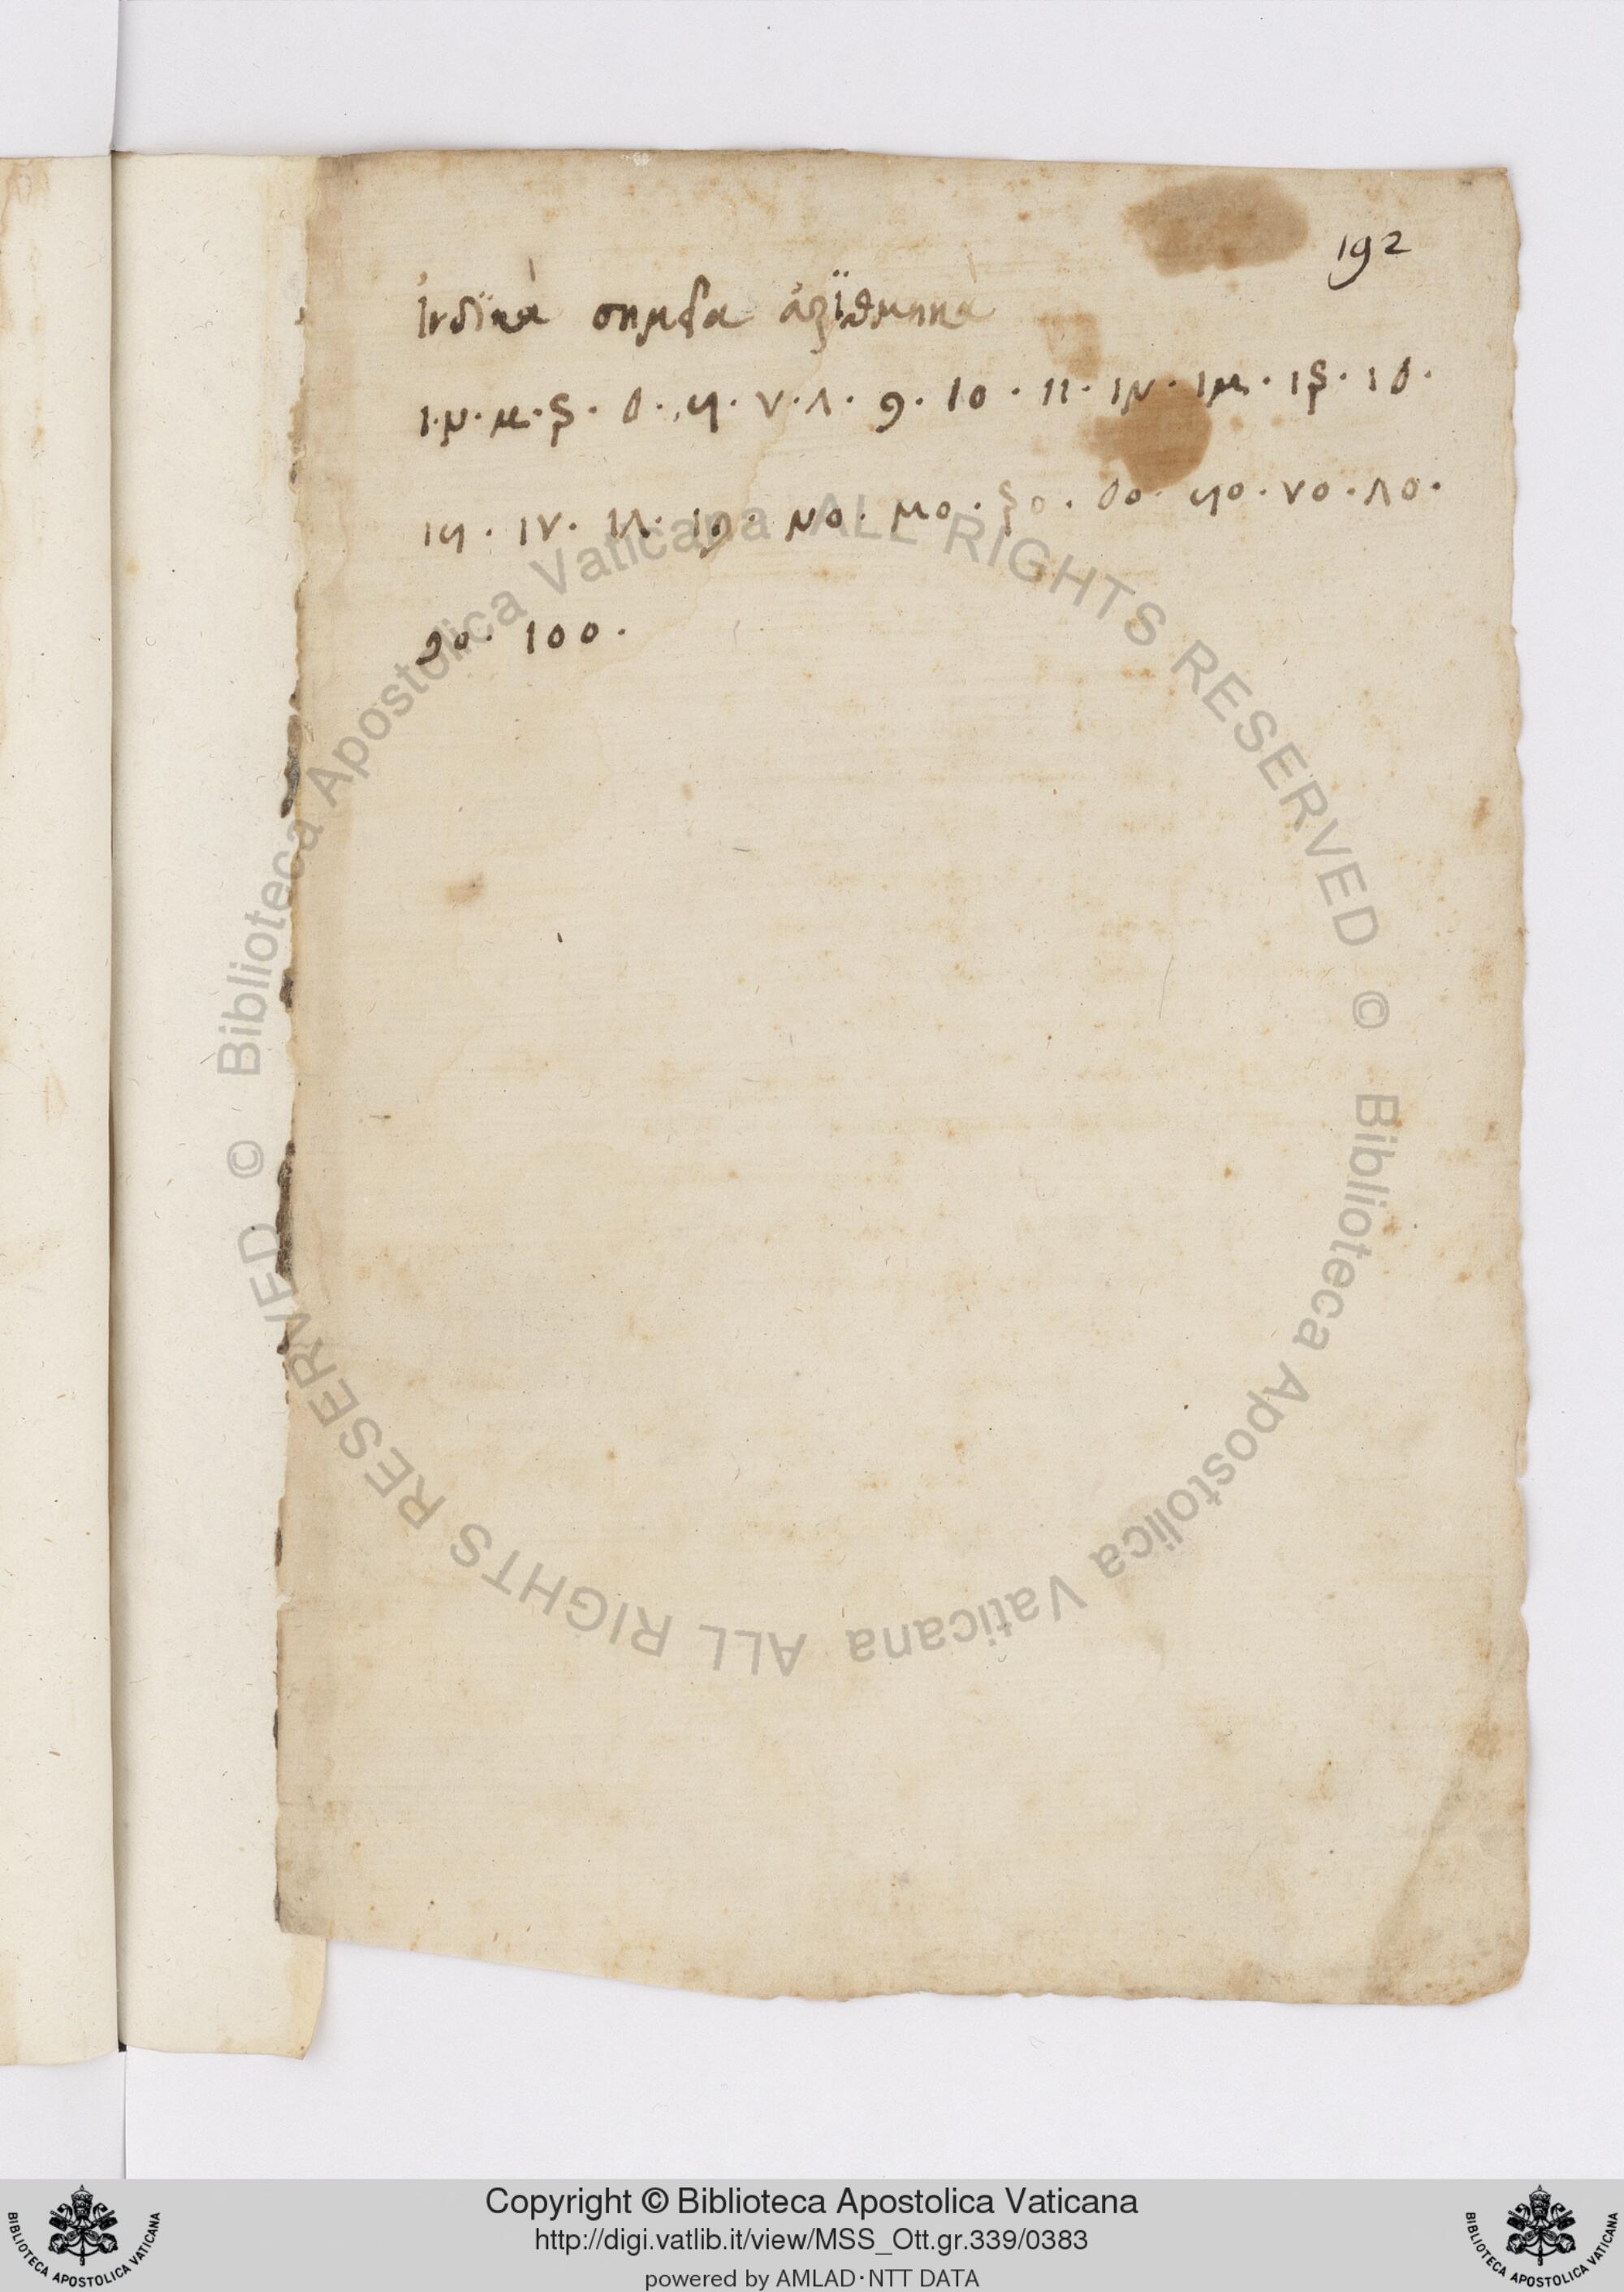 192
ἰνδϊκὰ σημεῖα ἀριϑμητικὰ
1 · μ · μ · ξ · δ · ч · ν · λ · 9 · 10 · 11 · 1μ · 1μ · 1ξ · 1δ ·
1ч · 1ν · 1λ · 19 · μ0 · μ0 · ξ0 · δ0 · ч0 · ν0 · λ0 ·
90 · 100 ·
© Biblioteca Apostolica Vaticana ALL RIGHTS RESERVED
© Biblioteca Apostolica Vaticana ALL RIGHTS RESERVED
BIBLIOTECA APOSTOLICA VATICANA
Copyright © Biblioteca Apostolica Vaticana
http://digi.vatlib.it/view/MSS_Ott.gr.339/0383
powered by AMLAD·NTT DATA
BIBLIOTECA APOSTOLICA VATICANA